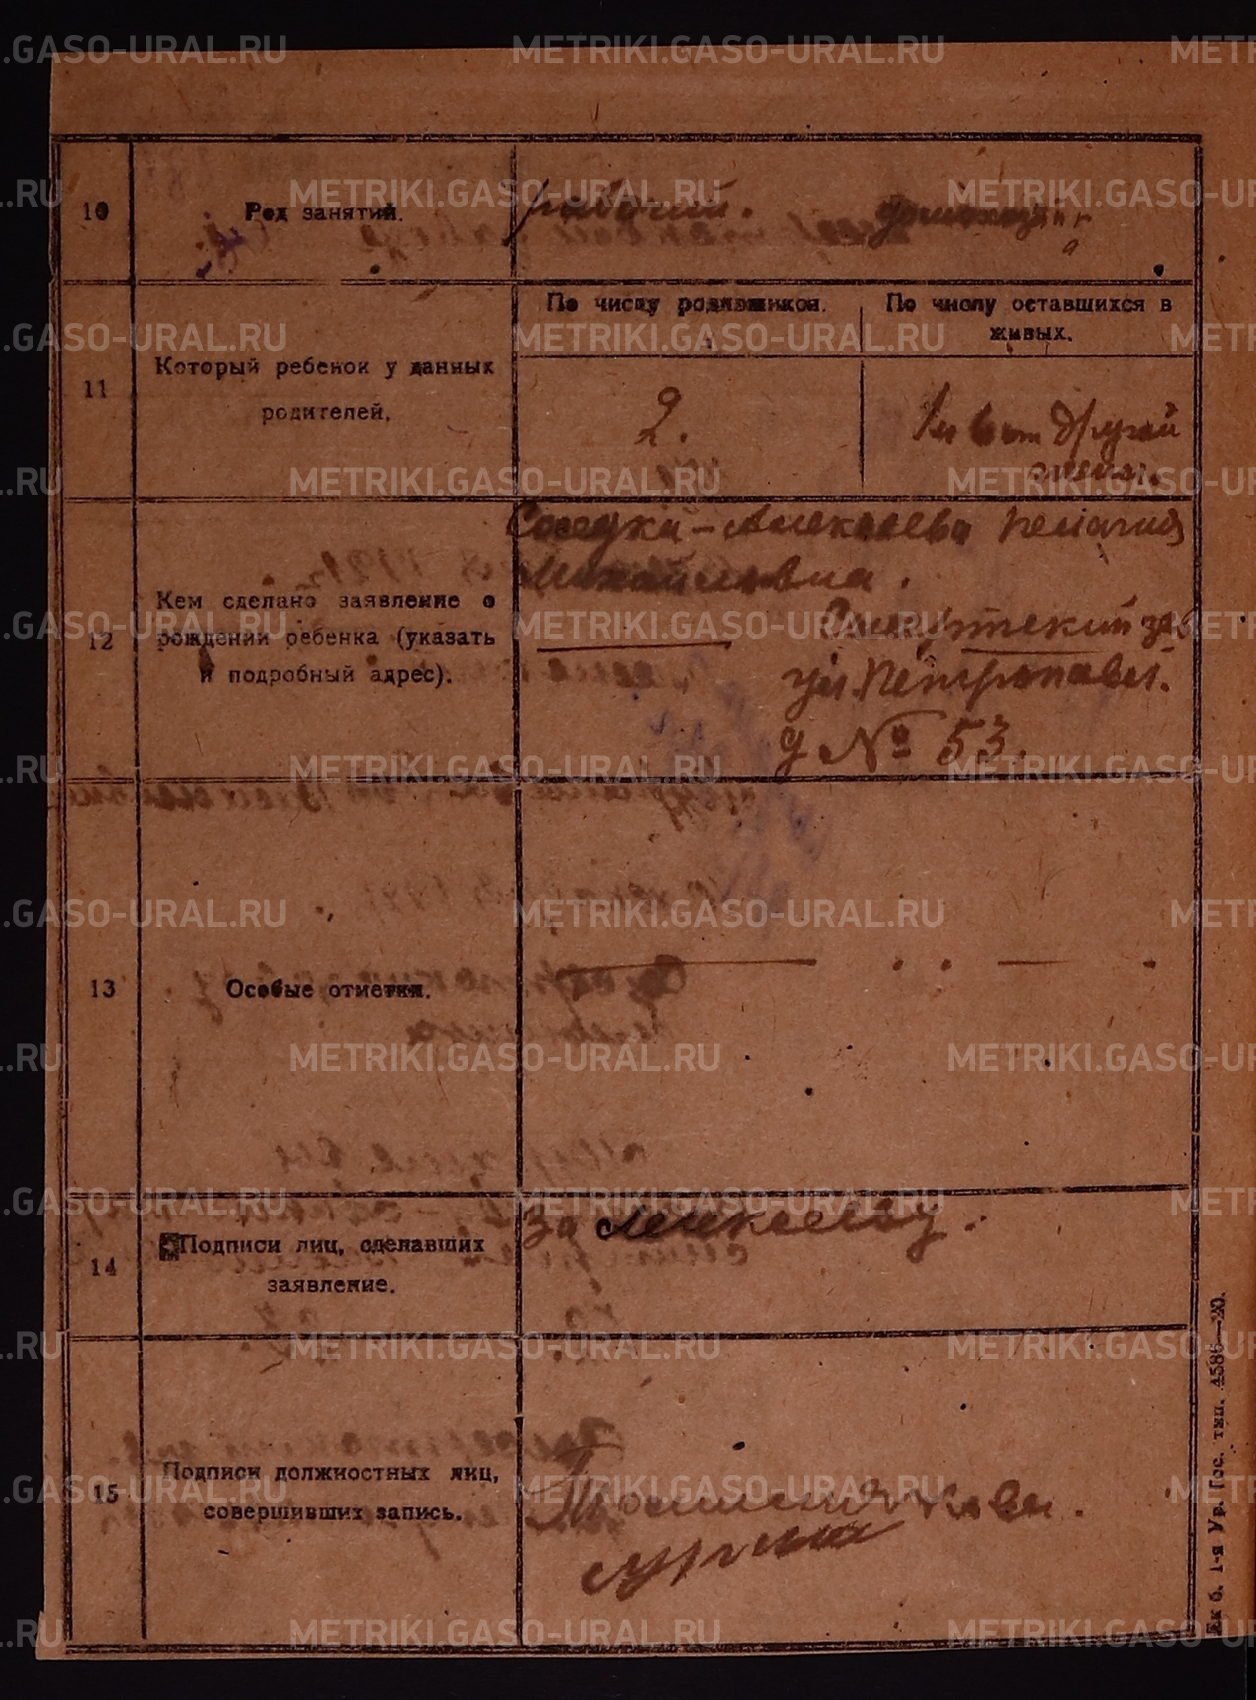 10
Род занятий.
рабочий.
домохозяйк
а
11
Который ребенок у данных
родителей.
По числу родившихся.
По числу оставшихся в
живых.
2.
1 и 1 от другой
жены.
12
Кем сделано заявление о
рождении ребенка (указать
и подробный адрес).
Соседка - Алексеева Пелагия
Михайловна.
зав
ул. Петропавл.
д № 53.
13
Особые отметки.
14
Подписи лиц, сделавших
заявление.
За Алексееву.
15
Подписи должностных лиц,
совершивших запись.
Ек б. 1-я Ур. Гос. тип. 4586—20.
METRIKI.GASO-URAL.RU